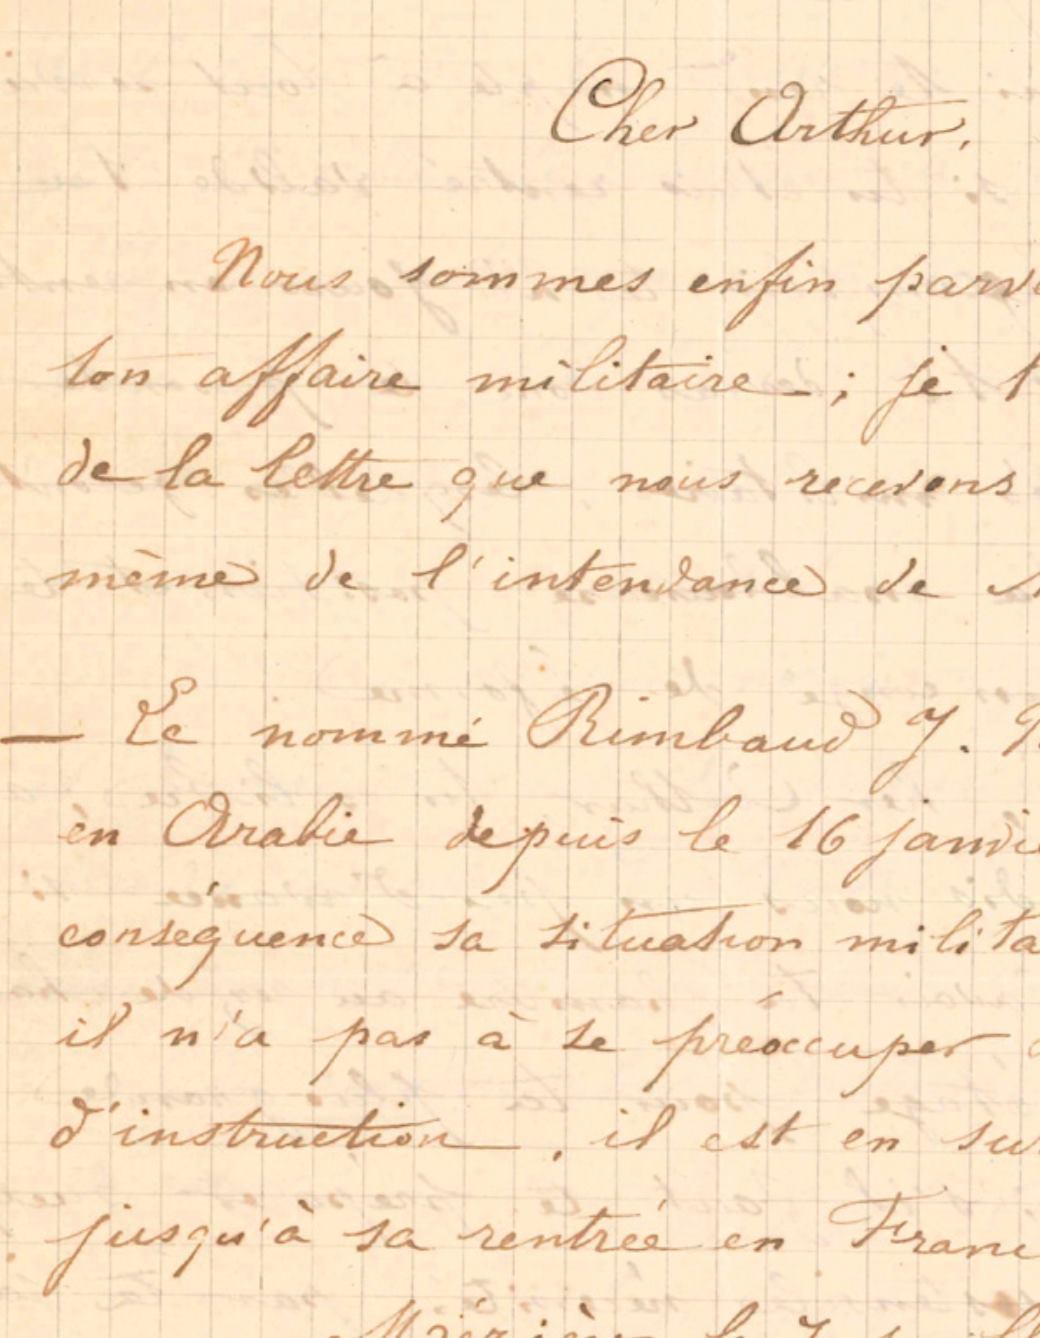 Cher Arthur,
Nous sommes enfin
ton affaire militaire ; je
de la lettre que nous recevons
même de l'intendance de
— Le nommé Rimbaud J.
en Arabie depuis le 16
conséquence sa situation
il n'a pas à se préoccuper
d'instruction, il est en
jusqu'à sa rentrée en